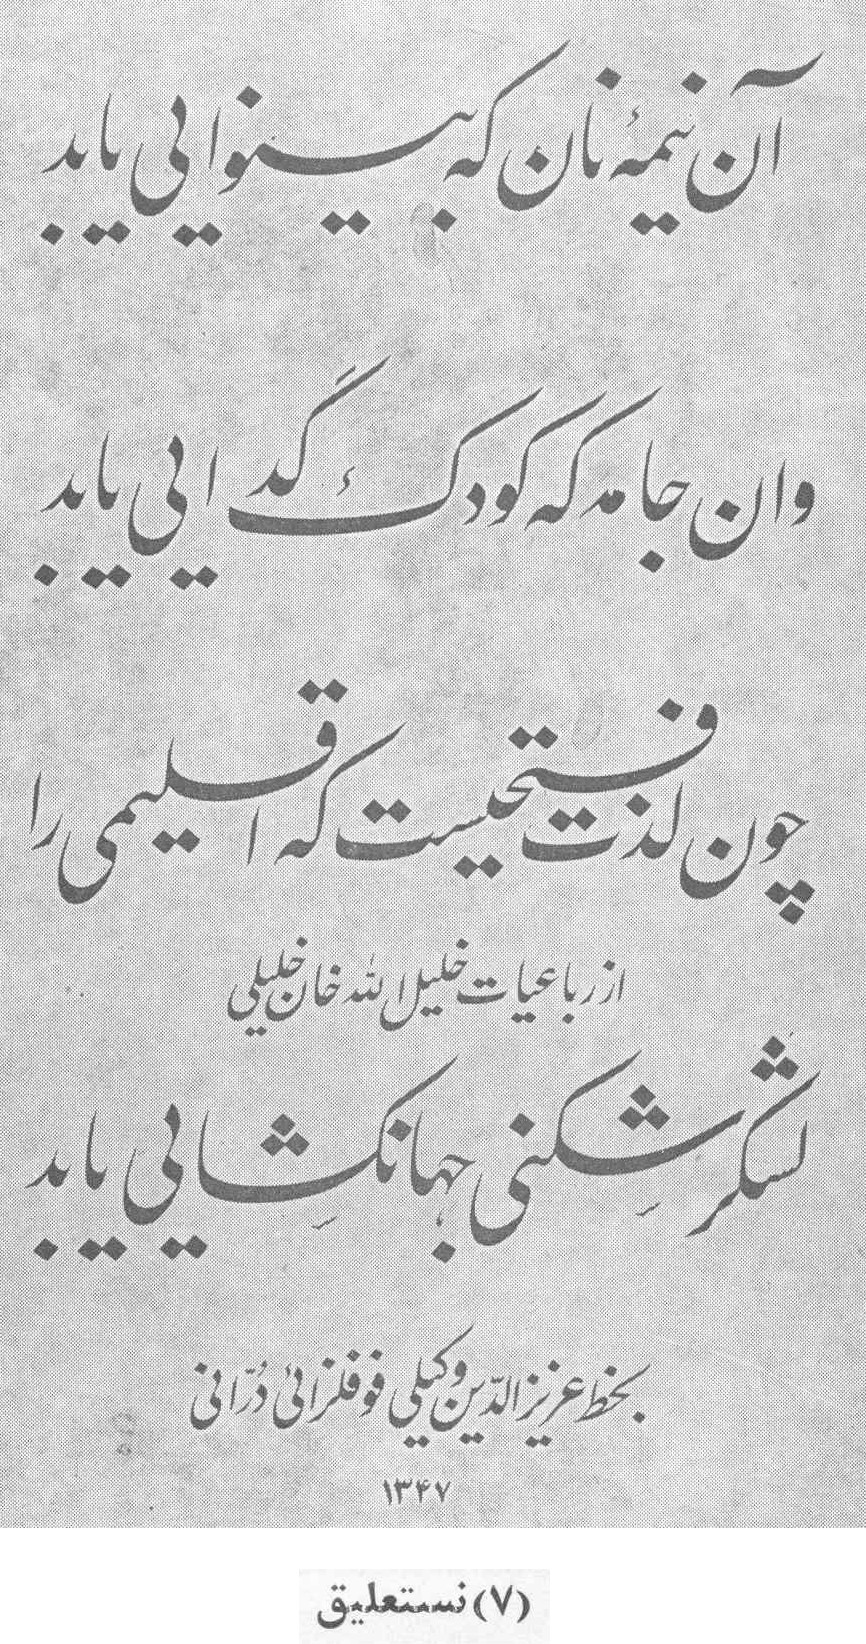 آن نیمهٔ نان که بینوایی یابد
وان جامه که کودک گدایی یابد
چون لذت فتحیست که اقلیمی را
از رباعیات خلیل الله خان خلیلی
لشکر شکنی جهانکشایی یابد
بخط عزیز الدّین وکیلی فوفلزائی دُرّانی
۱۳۴۷
(۷) نستعلیق